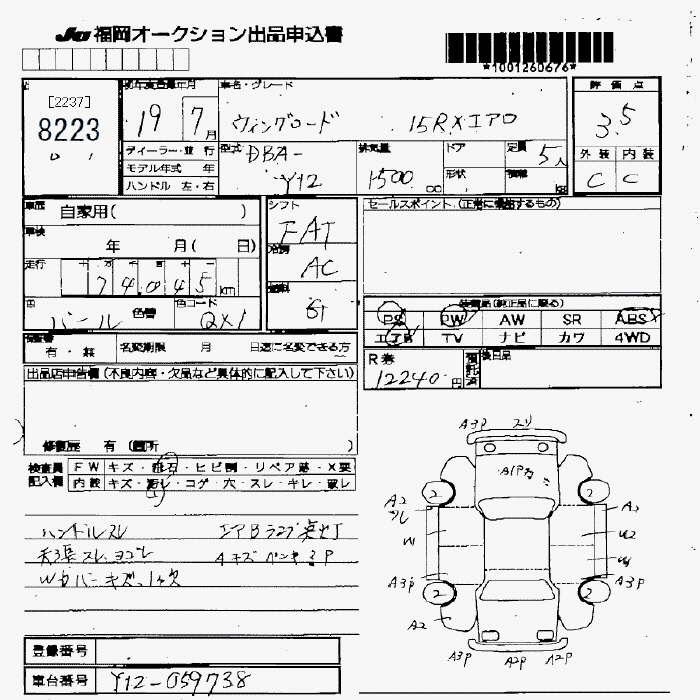 JU 福岡オークション出品申込書
*1001260676*
[2237]
8223
初年度登録年月
19 7月
車名・グレード
ウィングロード 15RXエアロ
評価点
3.5
外装 内装
C C
ディーラー・並行
モデル年式 年
ハンドル 左・右
型式 DBA-Y12
排気量 1500 cc
ドア
形状
定員 5人
積載 kg
車歴 自家用( )
車検 年 月( 日)
走行 74045 km
色 パール 色替
色コード QX1
シフト FAT
冷房 AC
燃料 G
セールスポイント (正常に機能するもの)
装備品(純正品に限る)
PS PW AW SR ABS
エアB TV ナビ カワ 4WD
有・無 名変期限 月 日迄に名変できる方
R券 12240円
預託済
後日品
出品店申告欄 (不良内容・欠品など具体的に記入して下さい)
修復歴 有 (箇所 )
検査員 FW キズ・飛石・ヒビ割・リペア跡・X要
記入欄 内装 キズ・汚レ・コゲ・穴・スレ・キレ・破レ
ハンドルスレ エアBランプ点灯
Wカバーキズ、1ヶ欠
A3P
A1P
2 2
A2 A2
W W2
A3P A3P
2 2
A2
A3P A2P A2P
登録番号
車台番号 Y12-059738